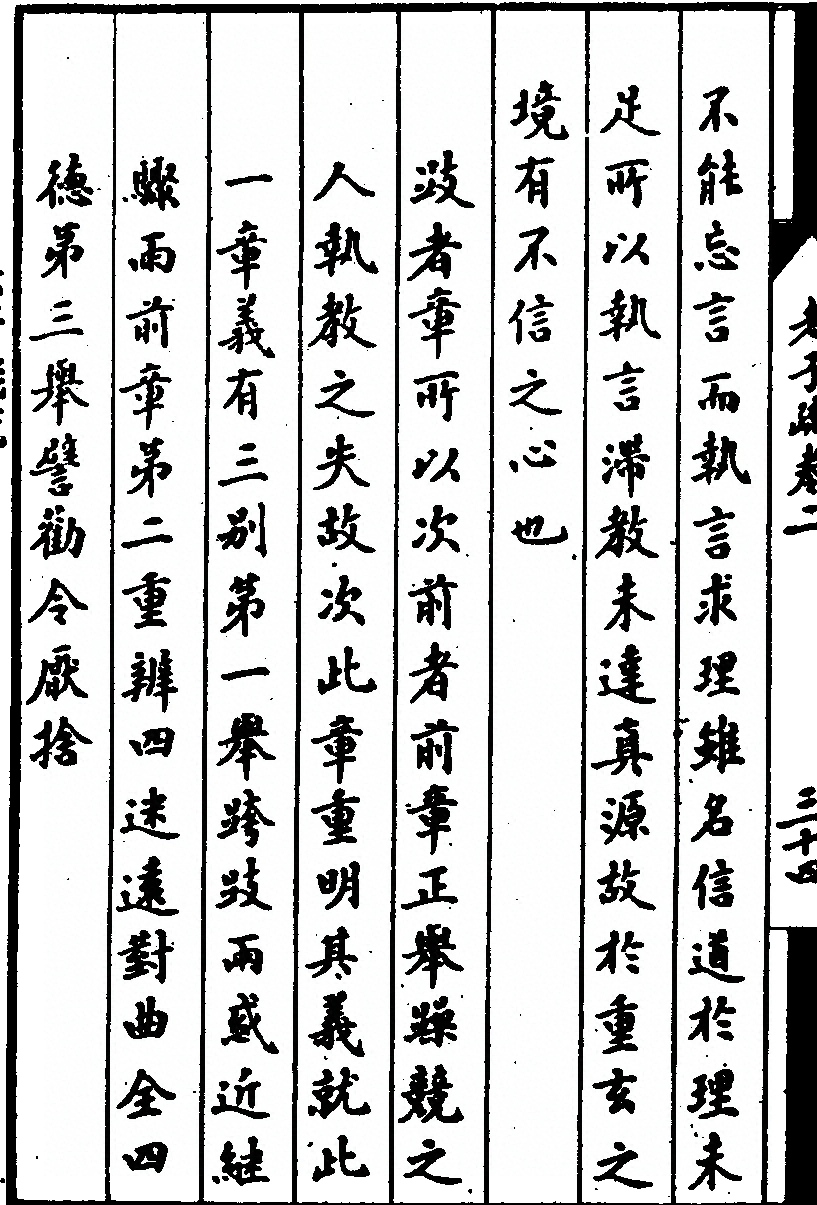 老子疏卷二
三十四
不能忘言而執言求理雖名信道於理未
足所以執言滯教未達真源故於重玄之
境有不信之心也
跂者章所以次前者前章正舉躁競之
人執教之失故次此章重明其義就此
一章義有三別第一舉跨跂兩惑近継
驟雨前章第二重辨四迷遠對曲全四
德第三舉譬勸令厭捨